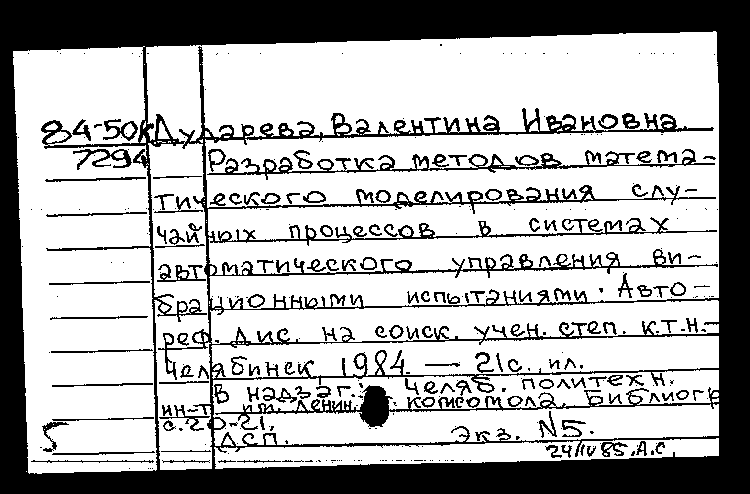 84-50к Дударева, Валентина Ивановна.
7294 Разработка методов матема-
тического моделирования слу-
чайных процессов в системах
автоматического управления ви-
брационными испытаниями: Авто-
реф. дис. на соиск. учен. степ. к.т.н.-
Челябинск, 1984. — 21с., ил.
В надзаг.: Челяб. политехн.
ин-т им. Ленин. комсомола. Библиогр
с.20-21.
ДСП. Экз. №5.
5
24/IV 85. А.С.